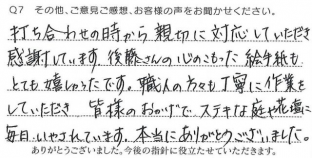 Q7 その他、ご意見ご感想、お客様の声をお聞かせください。
打ち合わせの時から親切に対応していただき
感謝しています。後藤さんの心のこもった絵手紙も
とても嬉しかったです。職人の方々も丁寧に作業を
していただき 皆様のおかげで、ステキな庭や花壇に
毎日いやされています。本当にありがとうございました。
ありがとうございました。今後の指針に役立たせていただきます。